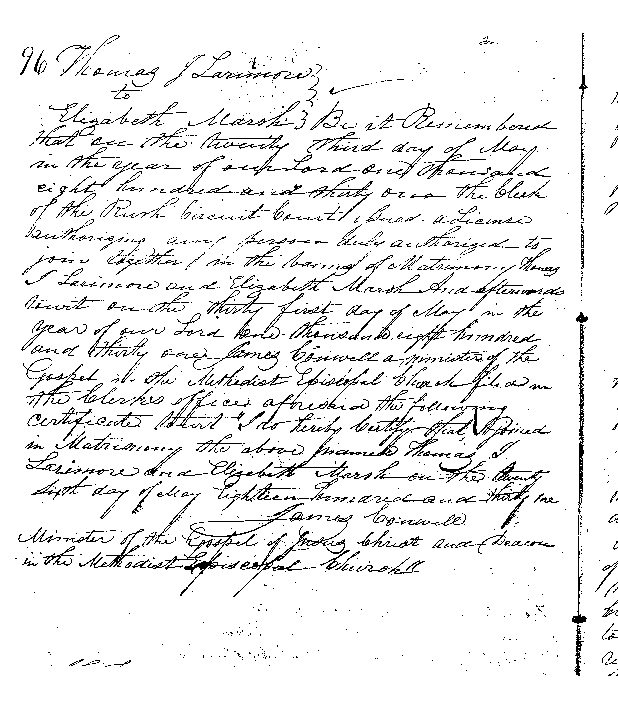 96 Thomas J Larimore }
to
Elizabeth Marsh } Be it Remembered
that on the twenty third day of May
in the year of our Lord one thousand
eight hundred and thirty one the Clerk
of the Rush Circuit Court issued a License
authorizing any person duly authorized to
join together in the banns of Matrimony Thomas
J Larimore and Elizabeth Marsh And afterwards
towit on the thirty first day of May in the
year of our Lord one thousand eight hundred
and thirty one James Conwell a minister of the
Gospel in the Methodist Episcopal Church filed in
the Clerks office aforesaid the following
certificate towit "I do hereby Certify that I joined
in Matrimony the above named Thomas J
Larimore and Elizabeth Marsh on the twenty
sixth day of May Eighteen hundred and thirty one
James Conwell
Minister of the Gospel of Jesus Christ and Deacon
in the Methodist Episcopal Church"